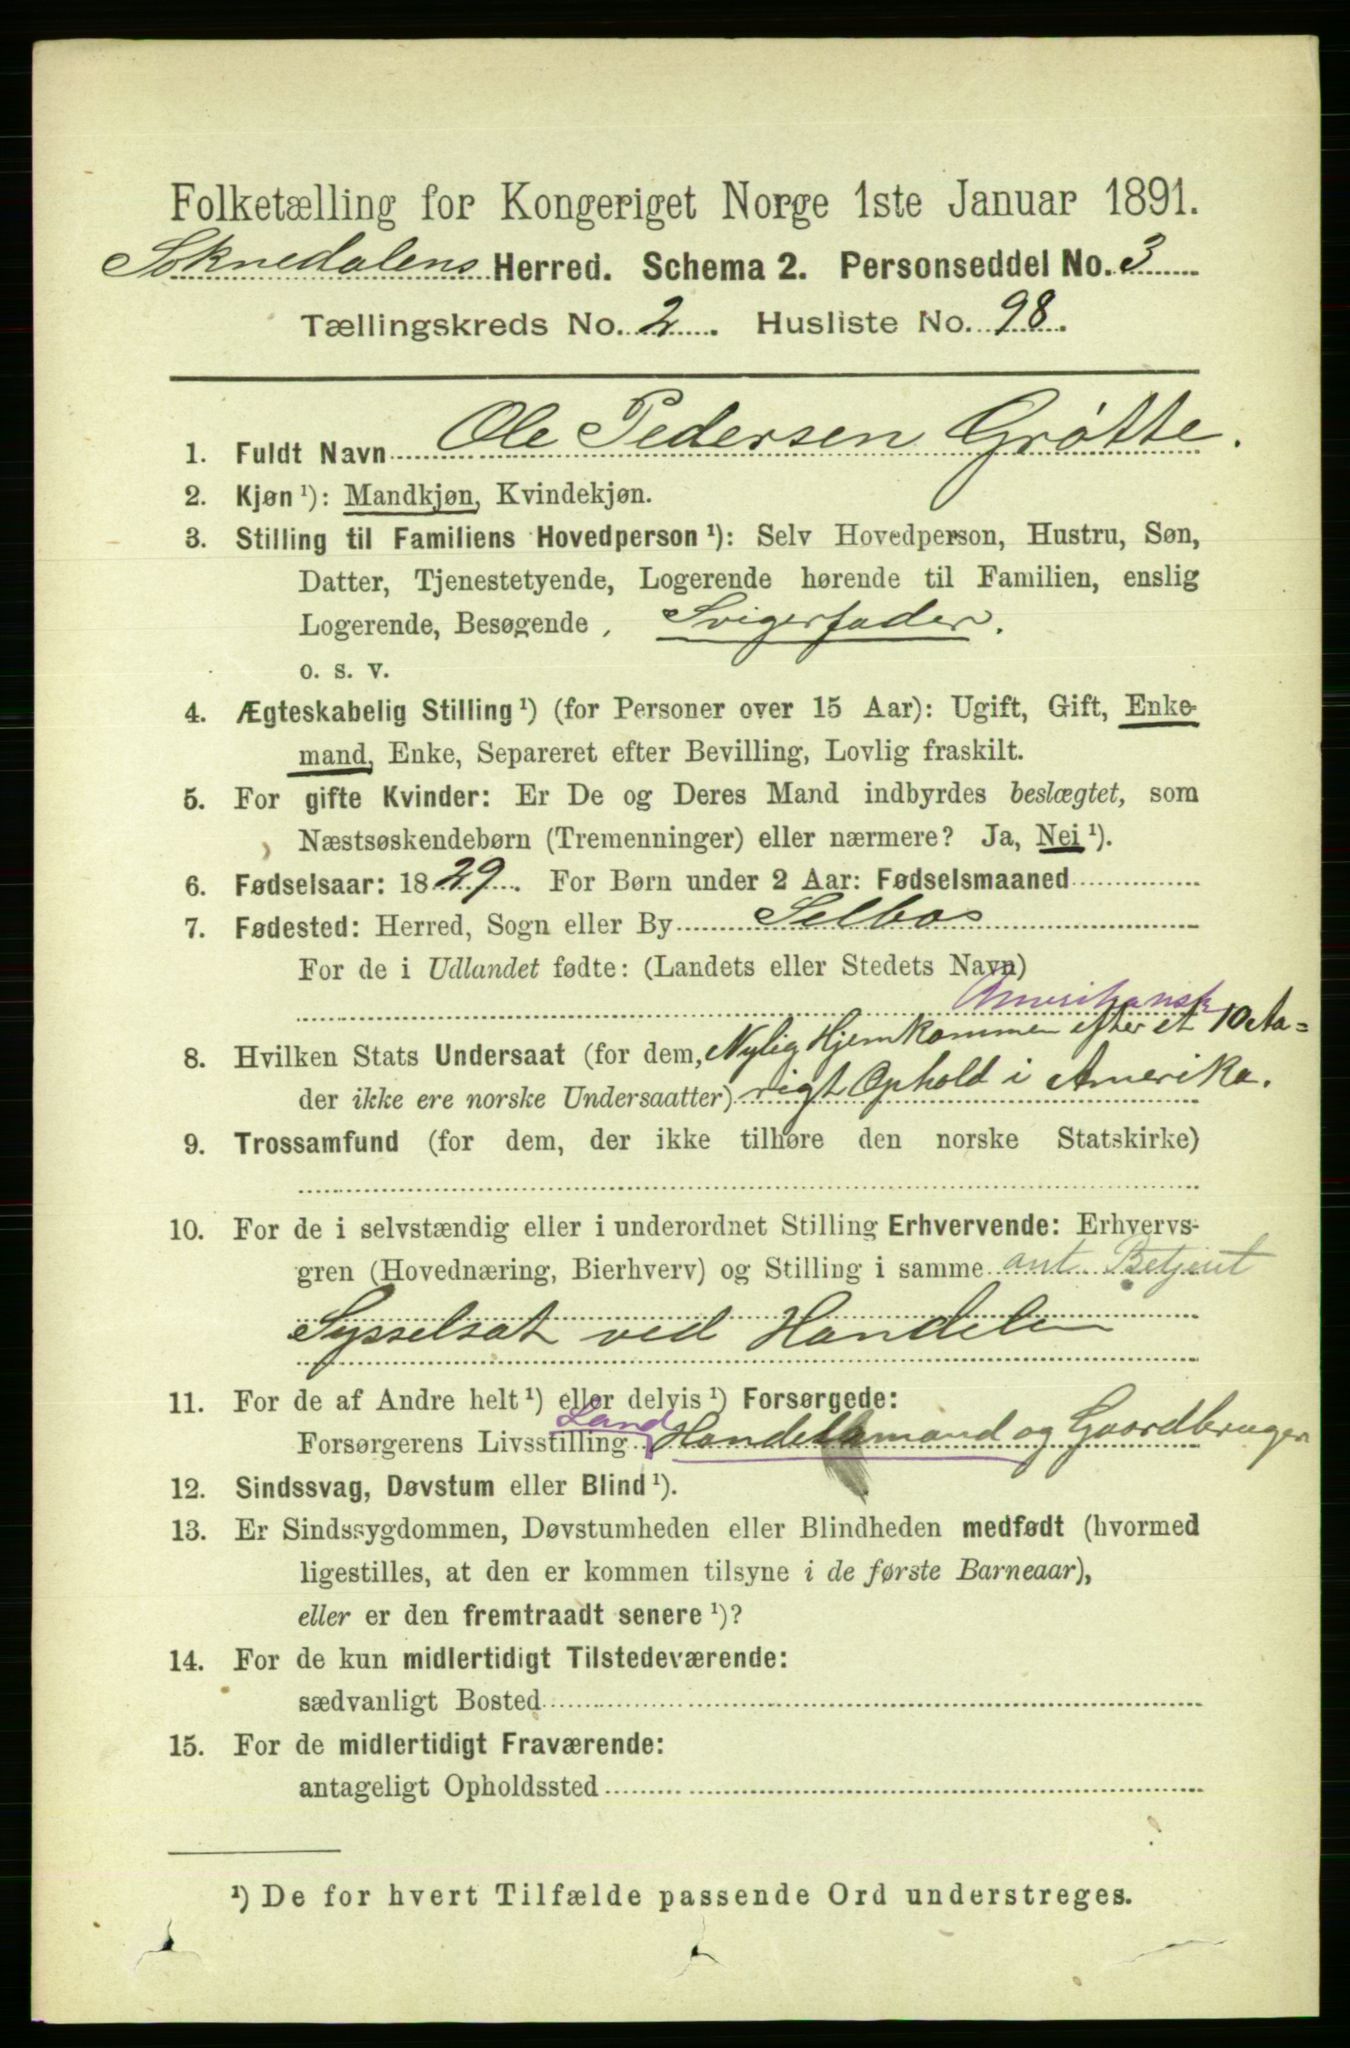 Folketælling for Kongeriget Norge 1ste Januar 1891.
Soknedalens Herred. Schema 2. Personseddel No. 3
Tællingskreds No. 2. Husliste No. 98.
1. Fuldt Navn Ole Pedersen Grøtte.
2. Kjøn ¹): Mandkjøn, Kvindekjøn.
3. Stilling til Familiens Hovedperson ¹): Selv Hovedperson, Hustru, Søn,
Datter, Tjenestetyende, Logerende hørende til Familien, enslig
Logerende, Besøgende, Svigerfader.
o. s. v.
4. Ægteskabelig Stilling ¹) (for Personer over 15 Aar): Ugift, Gift, Enke-
mand, Enke, Separeret efter Bevilling, Lovlig fraskilt.
5. For gifte Kvinder: Er De og Deres Mand indbyrdes beslægtet, som
Næstsøskendebørn (Tremenninger) eller nærmere? Ja, Nei ¹).
6. Fødselsaar: 1829. For Børn under 2 Aar: Fødselsmaaned
7. Fødested: Herred, Sogn eller By Selbo
For de i Udlandet fødte: (Landets eller Stedets Navn)
Amerikansk
8. Hvilken Stats Undersaat (for dem, Nylig Hjemkommen efter et 10 Aa=
der ikke ere norske Undersaatter) rigt Ophold i Amerika.
9. Trossamfund (for dem, der ikke tilhøre den norske Statskirke)
10. For de i selvstændig eller i underordnet Stilling Erhvervende: Erhvervs-
gren (Hovednæring, Bierhverv) og Stilling i samme ant. Betjent
Sysselsat ved Handelen
11. For de af Andre helt ¹) eller delvis ¹) Forsørgede:
Forsørgerens Livsstilling Land Handelsmand og Gaardbruger
12. Sindssvag, Døvstum eller Blind ¹).
13. Er Sindssygdommen, Døvstumheden eller Blindheden medfødt (hvormed
ligestilles, at den er kommen tilsyne i de første Barneaar),
eller er den fremtraadt senere ¹)?
14. For de kun midlertidigt Tilstedeværende:
sædvanligt Bosted
15. For de midlertidigt Fraværende:
antageligt Opholdssted
¹) De for hvert Tilfælde passende Ord understreges.